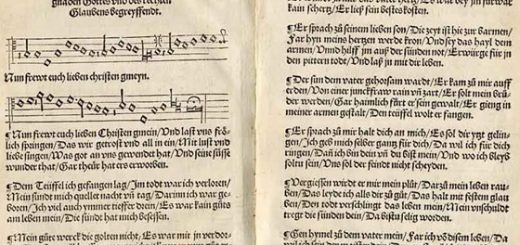 gnaden Gottes vnd des rechten
Glaubens begreyffendt.
Nun frewt euch lieben christen gmeyn.
¶Nun frewt euch lieben Christen gmein/Vnd last vns frö-
lich springen/Das wir getrost vnd all in ein/Mit lust vnd
liebe singen/Was got an vns gewendet hat/Vnd seine süsse
wunder that/Gar theür hat ers erworben.
¶Dem Teüffel ich gefangen lag/Im todt war ich verloren/
Mein sund mich quellet nacht vñ tag/Darinn ich war ge-
boren/Ich viel auch ymmer tieffer drein/Es war kain gůts
am leben mein/Die sünd hat mich besessen.
¶Mein gůte werck die golten nicht/Es war mit jr verdor-
kain schertz/Er ließ sein bestes kosten.
¶Er sprach zů seinem lieben son/Die zeyt ist hie zur barmen/
Far hyn meins hertzen werde kron/Vnd sey das hayl dem
armen/Vnnd hilff jm auß der sünden not/Erwürge für jn
den pittern todt/Vnd laß jn mit dir leben.
¶Der sun dem vater gehorsam wardt/Er kam zů mir auff
erden/Von einer junckfraw rain vñ zart/Er solt mein brů-
der werden/Gar haimlich fürt er sein gewalt/Er gieng in
meiner armen gestalt/Den teüffel wolt er fangen.
¶Er sprach zů mir halt dich an mich/Es sol dir yzt gelin-
gen/Ich geb mich selber gantz für dich/Da wil ich für dich
ringen/Dañ ich bin dein vñ du bist mein/Vnd wo ich bleyb
soltu sein/Vns sol der feindt nicht scheyden.
¶Vergiessen wirdt er mir mein plůt/Darzů mein leben rau-
ben/Das leyd ich alles dir zů gůt/Das halt mit festem glau-
ben/Den todt verschlingt das leben mein/Mein vnschuldt
tregt die sünden dein/Da bistu selig worden.
¶Gen hymel zů dem vater mein/Far ich von disem leben/Da